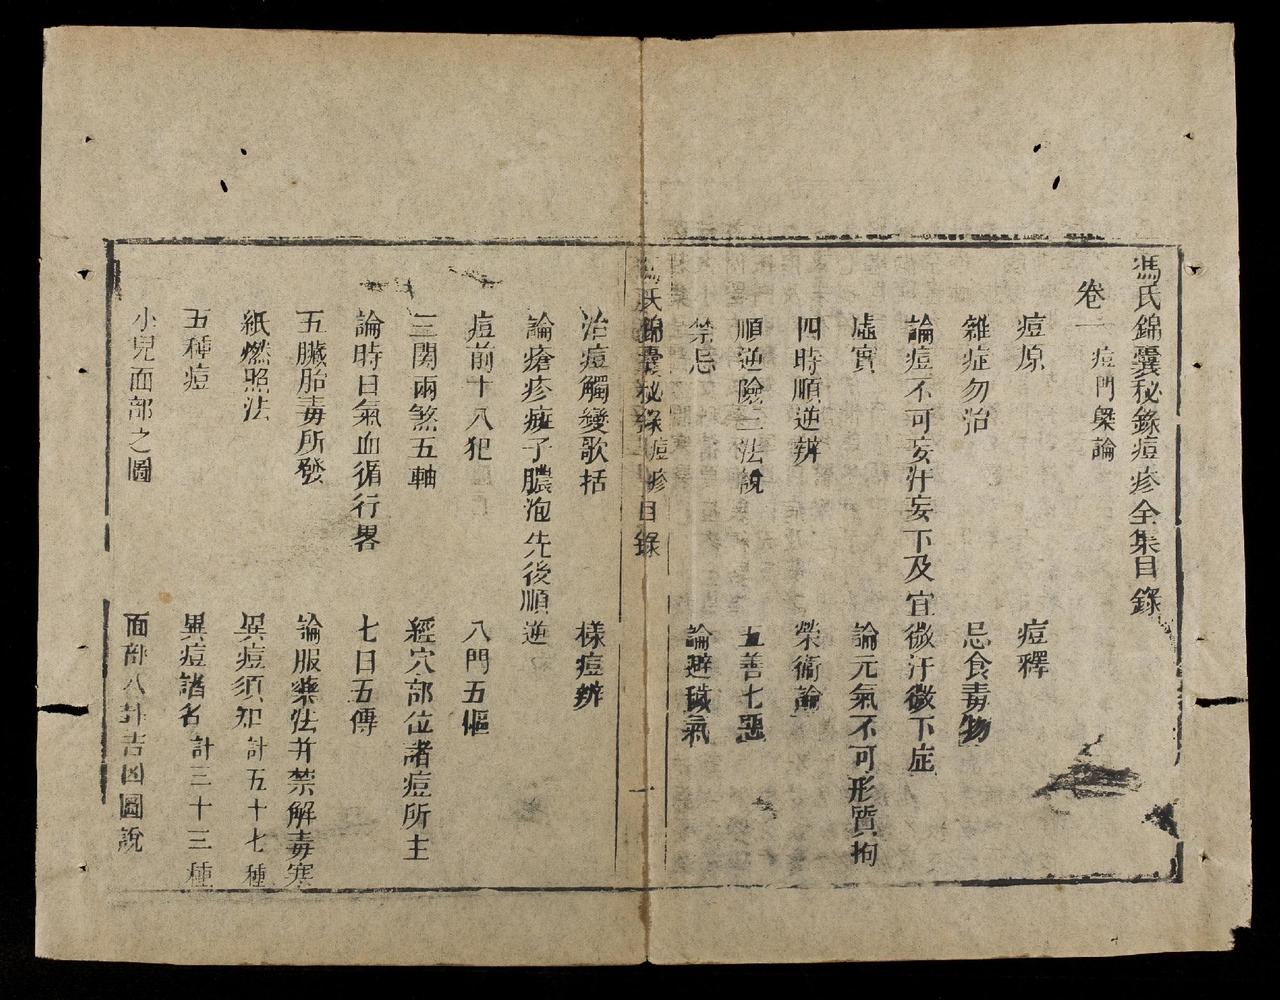 馮氏錦囊秘錄痘疹全集目錄
卷二 痘門槩論
痘原 痘釋
雜症勿治 忌食毒物
論痘不可妄汗妄下及宜微汗微下症
虛實 論元氣不可形質拘
四時順逆辨 榮衛論
順逆險三法說 五善七惡
禁忌 論避穢氣
馮氏錦囊秘錄 痘疹 目錄
治痘觸變歌括 様痘辨
論瘡疹癍子膿泡先後順逆
痘前十八犯 八門五傴
三関兩煞五軸 經穴部位諸痘所主
論時日氣血循行畧 七日五傳
五臟胎毒所發 論服藥法并禁解毒寒
紙燃照法 異痘須知 計五十七種
五種痘 異痘諸名 計三十三種
小兒面部之圖 面部八卦吉凶圖說